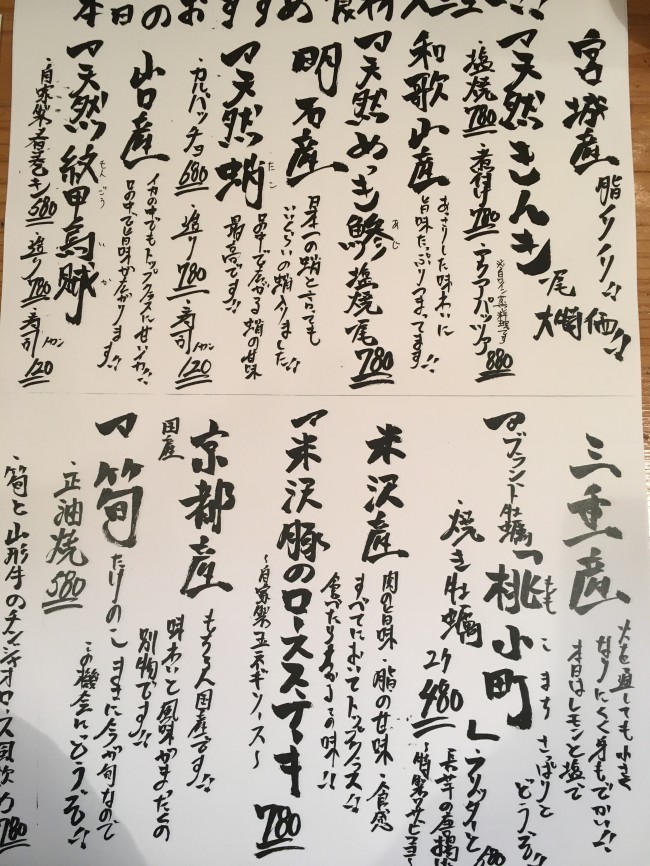 本日のおすすめ食材入荷!!
宮城産 脂ノリノリ!!
天然きんき 一尾 大特価!!
・塩焼780・煮付780・アクアパッツァ880
和歌山産 あっさりした味わいに
旨味たっぷりつまってます!!
天然めっき鯵 あじ 塩焼一尾780
明石産 日本一の蛸と言っても
いいくらいの蛸入りました!!
天然蛸 噛む度に広がる蛸の甘味
最高です!!
・カルパッチョ680・造り780・寿司120
山口産 イカの中でもトップクラスに甘いイカ!!
口の中で旨味が広がります!!
天然紋甲烏賊 もんごういか
・自家製春巻き580・造り780・寿司120
三重産 火を通しても小さく
なりにくく身もでかい!!
本日はレモンと塩で
さっぱりと
どうぞ!!
ブランド牡蠣「桃小町」 ももこまち
・焼き牡蠣 2ケ480
・フリッタと
長芋の唐揚げ
米沢産 肉の旨味・脂の甘味・食感
すべてにおいてトップクラス!!
食べたらわかるこの味!!
米沢豚のロースステーキ
〜自家製玉ネギソース〜 780
国産 京都産 もちろん国産です!!
味わいと風味がまったくの
別物です!!
筍 たけのこ まさに今が旬なので
この機会にどうぞ!!
・正油焼580
・筍と山形牛のチンジャオロース風炒め780